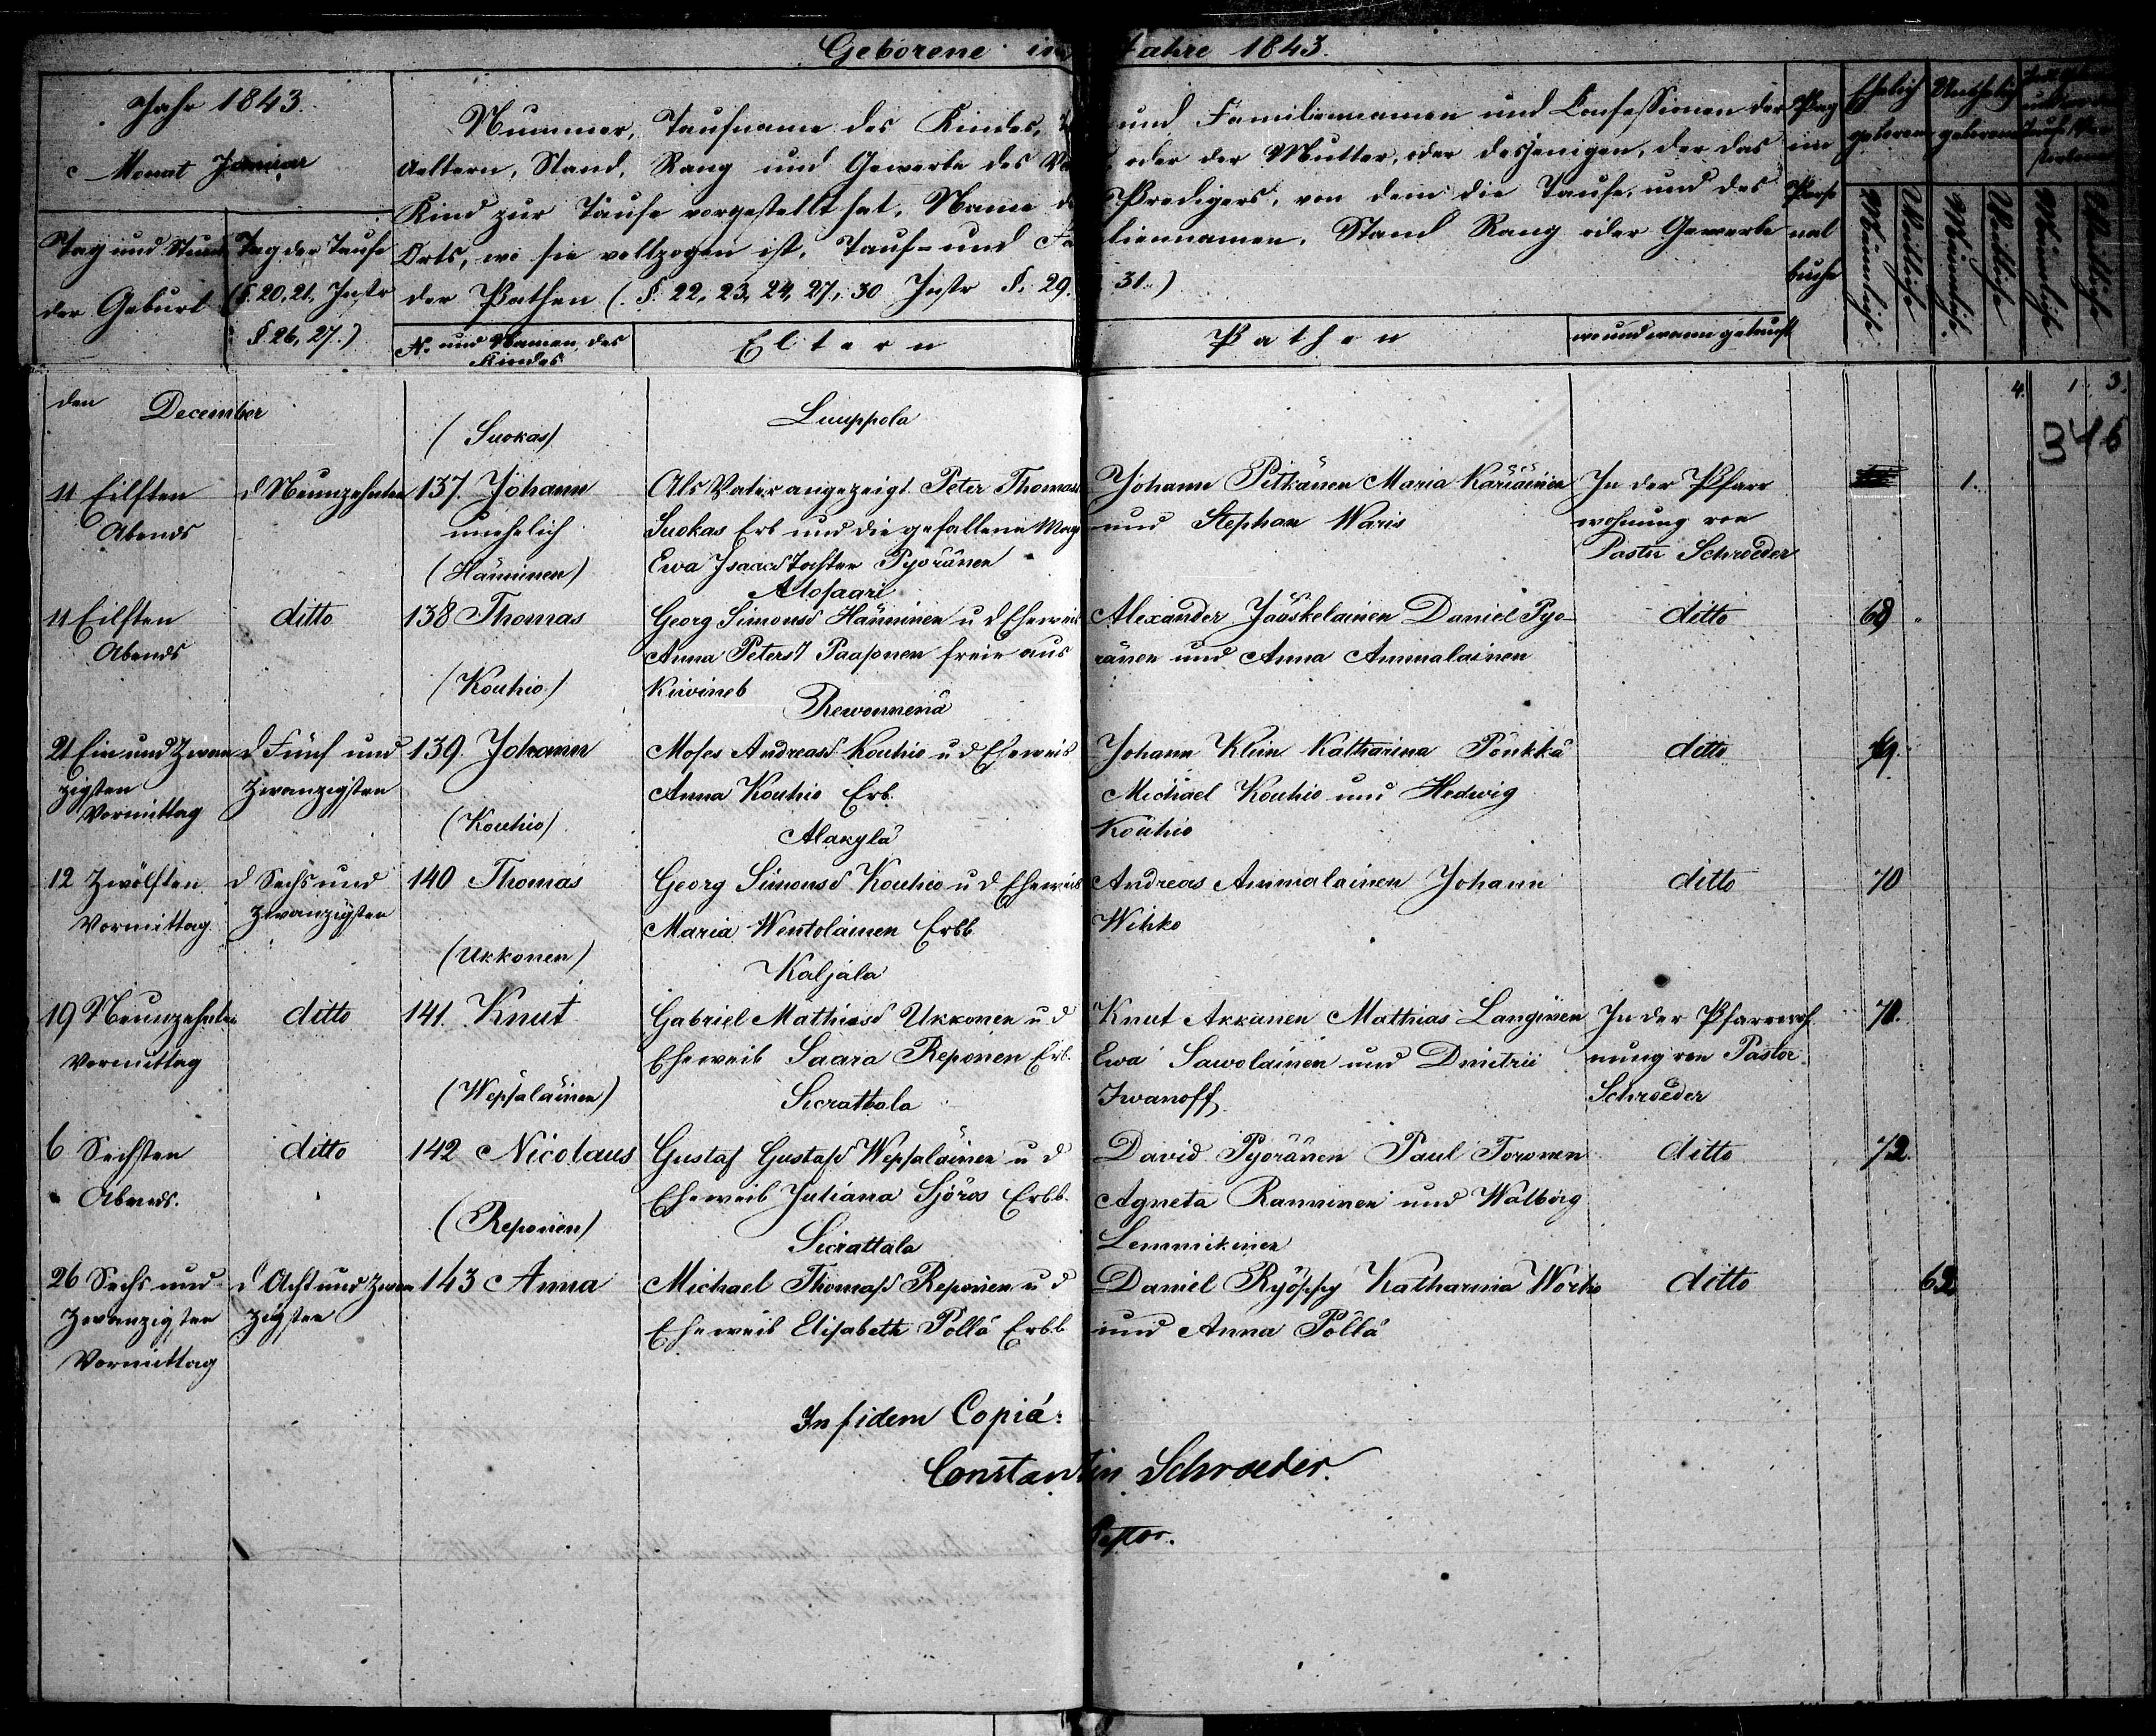 Geborene im Jahre 1843.
Jahr 1843.
Monat Januar
Tag und Stunde der Geburt
Tag der Taufe (§. 20, 21, Instr § 26, 27.)
Nummer, Taufname des Kindes, und Familiennamen und Confessionen der
Aeltern, Stand, Rang und Gewerbe des oder der Mutter, oder desjenigen, der das
Kind zur Taufe vorgestellt hat, Name Predigers, von dem die Taufe, und des
Orts, wo sie vollzogen ist, Tauf- und Familiennamen, Stand Rang oder Gewerbe
der Pathen (. §. 22, 23, 24, 27, 30 Instr §. 29. 31.)
N. und Namen des Kindes
Eltern
Pathen
wo und wann getauft
Pag im Personalbuche
Ehelich geborene
Unehelich geborene
Männliche
Weibliche
Männliche
Weibliche
Männliche
Weibliche
den December
4. 1. 3.
346
(Suokas)
Luuppola
11 Eilften
Abends
d Neunzehnten
137. Johann
unehelich
Als Vater angezeigt Peter Thomas
Suokas Erb und die gefallene Magd
Ewa Isaacs Tochter Pyöränen
Johann Pitkänen Maria Käriäinen
und Stephan Waris
In der Pfarr
wohnung von
Pastor Schroeder
1.
(Hänninen)
Alosaari
11 Eilften
Abends
ditto
138 Thomas
Georg Simonsd Hänninen u d Eheweib
Anna Peters T Paaponen freie aus
Kiwineb
Alexander Jääskelainen Daniel Pyö-
ränen und Anna Ammalainen
ditto
68
(Kouhio)
Rewonneriä
21 Ein und Zwan
zigsten
Vormittag
d Fünf und
Zwanzigsten
139. Johann
Moses Andreasd Kouhio u d Eheweib
Anna Kouhio Erb.
Johann Klein Katharina Pönkkä
Michael Kouhio und Hedwig
Kouhio
ditto
69.
(Kouhio)
Alakylä
12 Zwölften
Vormittag
d Sechs und
Zwanzigsten
140 Thomas
Georg Simonsd Kouhio u d Eheweib
Maria Wentolainen Erbb
Andreas Ammalainen Johann
Wihko
ditto
70
(Ukkonen)
Kaljala
19 Neunzehnten
Vormittag
ditto
141. Knut
Gabriel Mathiasd Ukkonen u d
Eheweib Saara Reponen Erb.
Knut Akkanen Matthias Langinen
Ewa Sawolainen und Dmitrii
Iwanoff
In der Pfarrwoh
nung von Pastor
Schroeder
71.
(Wepsäläinen)
Sierattala
6 Sechsten
Abends.
ditto
142 Nicolaus
Gustaf Gustafsd Wepsäläinen u d
Eheweib Juliana Sjöros Erbb.
David Pyöränen Paul Toronen
Agneta Ranninen und Walborg
Lemmikinen
ditto
72.
(Reponen)
Sierattala
26 Sechs und
Zwanzigsten
Vormittag
d Acht und Zwan
zigsten
143 Anna
Michael Thomasd Reponen u d
Eheweib Elisabeth Pöllä Erbb
Daniel Ryöppy Katharina Worho
und Anna Pöllä
ditto
62
In fidem Copiä:
Constantin Schroeder.
Pastor.